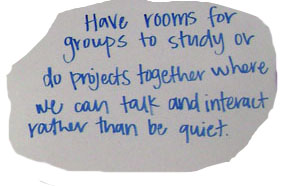 Have rooms for
groups to study or
do projects together where
we can talk and interact
rather than be quiet.